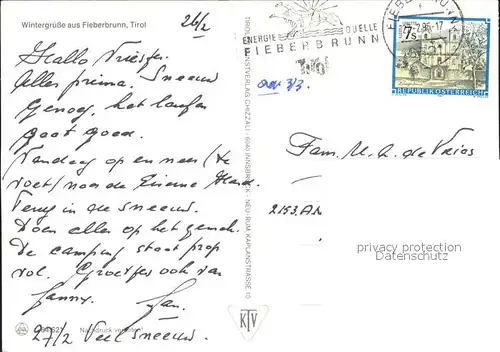 Wintergrüße aus Fieberbrunn, Tirol
26/2
Hallo Vriesjes.
Alles prima. Sneeuw
genoeg, het laufen
gaat goed.
Vandaag op en neer (te
voet) naar de
Terug in de sneeuw.
Doen alles op het gemak.
De camping staat prop
vol. Groetjes ook van
Fanny. Jan.
27/2 Veel sneeuw.
Nachdruck verboten!
TIROLER KUNSTVERLAG CHIZZALI · 6040 INNSBRUCK - NEU-RUM, KAPLANSTRASSE 10
KTV
ENERGIE QUELLE
FIEBERBRUNN
Tirol
3/3
FIEBERBRUNN
7S
REPUBLIK ÖSTERREICH
Fam. M. A. de Vries
2153.
passionforum
Dokumentenservice